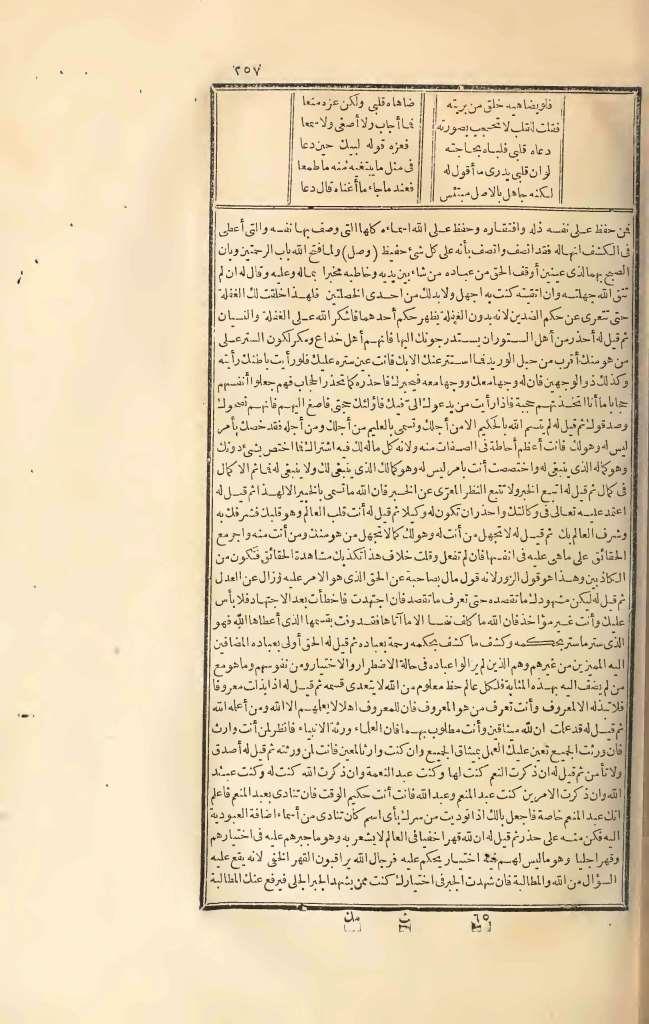 ٣٥٧
فلو يضاهيه خلق من بريته ضاهاه قلبي ولكن عزه منعا
فقلت لقلب لا تحجب بصورته فما أجاب ولا أصغى ولا سمعا
دعاه قلبي فلباه بحاجته فعزه قوله لبيك حين دعا
لو ان قلبي يدرى ما أقول له في مثل ما يبتغيه منه ما طمعا
لكنه جاهل بالاصل مبتئس فعند ما جاء ما أغناه قال دعا
فمن حفظ على نفسه ذله وافتقاره وحفظ على الله اسماءه كلها التى وصف بها نفسه والتى أعطى
فى الكشف انها له فقد انصف واتصف بأنه على كل شئ حفيظ (وصل) ولما فتح الله باب الرحمتين وبان
الصبح بهما لذى عينين أوقف الحق من عباده من شاء بين يديه وخاطبه مخبرا بماله وعليه وقال له ان لم
تتق الله جهلته وان اتقيته كنت به اجهل ولا بد لك من احدى الخصلتين فلهذا خلقت لك الغفلة
حتى تتعرى عن حكم الضدين لانه بدون الغفلة يظهر حكم أحدهما فاشكر الله على الغفلة والنسيان
ثم قيل له أحذر من أهل الستور ان يستدرجونك اليها فانهم أهل خداع ومكر لكون الستر على
من هو منك أقرب من حبل الوريد فما استتر عنك الا بك فانت عين ستره عليك فلو رأيت باطنك رأيته
وكذلك ذو الوجهين فان له وجها معك ووجها معه فيحيرك فاحذره كما تحذر الحجاب فهم جعلوا أنفسهم
حجابا ما أنا اتخذتهم حجبة فاذا رأيت من يدعوك الى فيك فأولئك حجبتى فاصغ اليهم فانهم نصحوك
وصدقوك ثم قيل له لم يتسم الله بالحكيم الا من أجلك وتسمى بالعليم من أجلك ومن أجله فقد خصك بأمر
ليس له وهو لك فانت أعظم أحاطة فى الصفات منه ولانه كل ماله لك فيه اشتراك فما اختص بشئ دونك
وهو كماله الذى ينبغى له واختصصت أنت بامر ليس له وهو كمالك الذى ينبغى لك ولا ينبغى له فما ثم الا كمال
فى كمال ثم قيل له اتبع الخبر ولا تتبع النظر المعرى عن الخبر فان الله ما تسمى بالخبير الا لهذا ثم قيل له
اعتمد عليه تعالى فى وكالتك واحذر ان تكون له وكيلا ثم قيل له أنت قلب العالم وهو قلبك فشرفك به
وشرف العالم بك ثم قيل له لا تجهل من أنت له وهو لك كما لا تجهل من هو منك ومن أنت منه واجر مع
الحقائق على ما هى عليه فى انفسها فان لم تفعل وقلت خلاف هذا أكذبتك مشاهدة الحقائق فتكون من
الكاذبين وهذا هو قول الزور لانه قول مال بصاحبه عن الحق الذى هو الامر عليه وزال عن العدل
ثم قيل له ليكن مشهودك ما تقصده حتى تعرف ما تقصد فان اجتهدت فاخطأت بعد الاجتهاد فلا بأس
عليك وأنت غير مؤاخذ فان الله ما كلف نفسا الا ما آتاها فقد وفت بقسمها الذى أعطاها الله فهو
الذى ستر ما ستر بحكمه وكشف ما كشف بحكمه رحمة بعباده ثم قيل له الحق أولى بعباده المضافين
اليه المميزين من غيرهم وهم الذين لم يزالوا عباده فى حالة الاضطرار والاختيار ومن نفوسهم وما هو مع
من لم يضف اليه بهذه المثابة فلكل عالم حظ معلوم من الله لا يتعدى قسمه ثم قيل له اذا بذلت معروفا
فلا تبذله الا لمعروف وأنت تعرف من هو المعروف فان للمعروف اهلا لا يعلمهم الا الله ومن أعلمه الله
ثم قيل له قد علمت ان لله ميثاقين وأنت مطلوب بهما فان العلماء ورثة الانبياء فانظر لمن أنت وارث
فان ورثت الجميع تعين عليك العمل بميثاق الجميع وان كنت وارثا لمعين فانت لمن ورثته ثم قيل له أصدق
ولا تأمن ثم قيل له ان ذكرت النعم كنت لها وكنت عبد النعمة وان ذكرت الله كنت له وكنت عبد
الله وان ذكرت الامرين كنت عبد المنعم وعبد الله فانت أنت حكيم الوقت فان تنادى بعبد المنعم فاعلم
انك عبد المنعم خاصة فاجعل بالك اذا نوديت من سرك بأى اسم كان تنادى من أسماء اضافة العبودية
اليه فكن منه على حذر ثم قيل له ان لله قهرا خفيا فى العالم لا يشعر به وهو ما جبرهم عليه فى اختيارهم
وقهرا جليا وهو ما ليس لهم فيه اختيار يحكم عليه فرجال الله يراقبون القهر الخفى لانه يقع عليه
السؤال من الله والمطالبة فان شهدت الجبر فى اختيارك كنت ممن يشهد الجبر الجلى فيرفع عنك المطالبة
٦٥ ث مك